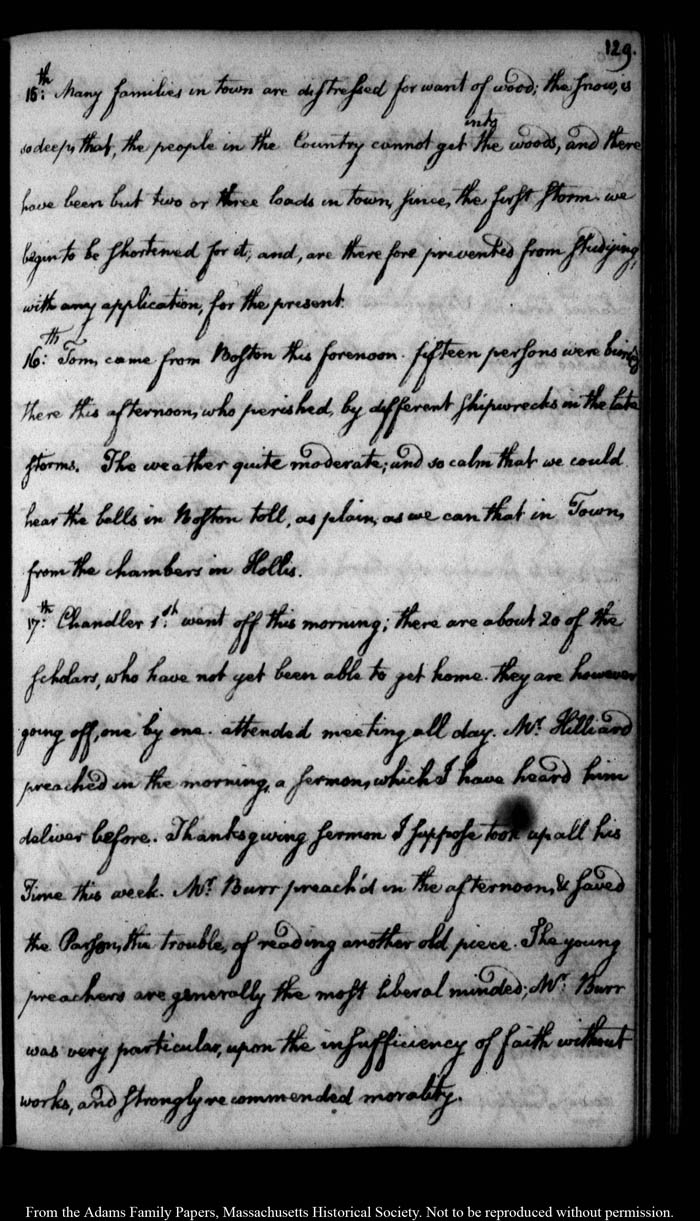 129.
15:th Many families in town are distressed for want of wood; the snow, is
so deep, that, the people in the Country cannot get into the woods, and there
have been but two or three loads in town, since, the first storm. we
begin to be shortened for it; and, are therefore prevented from studying,
with any application, for the present.
16:th Tom, came from Boston this forenoon. fifteen persons were buried
there this afternoon, who perished, by different shipwrecks in the late
storms. The weather quite moderate; and so calm that we could
hear the bells in Boston toll, as plain, as we can that in Town,
from the chambers in Hollis.
17:th Chandler 1:st went off this morning; there are about 20 of the
scholars, who have not yet been able to get home. they are however
going off, one by one. attended meeting all day. Mr. Hilliard
preached in the morning, a sermon, which I have heard him
deliver before. Thanksgiving sermon I suppose took up all his
Time this week. Mr. Burr preach'd in the afternoon, & saved
the Parson, the trouble, of reading another old piece. The young
preachers are generally the most liberal minded; Mr. Burr
was very particular, upon the insufficiency of faith without
works, and strongly recommended morality.
From the Adams Family Papers, Massachusetts Historical Society. Not to be reproduced without permission.